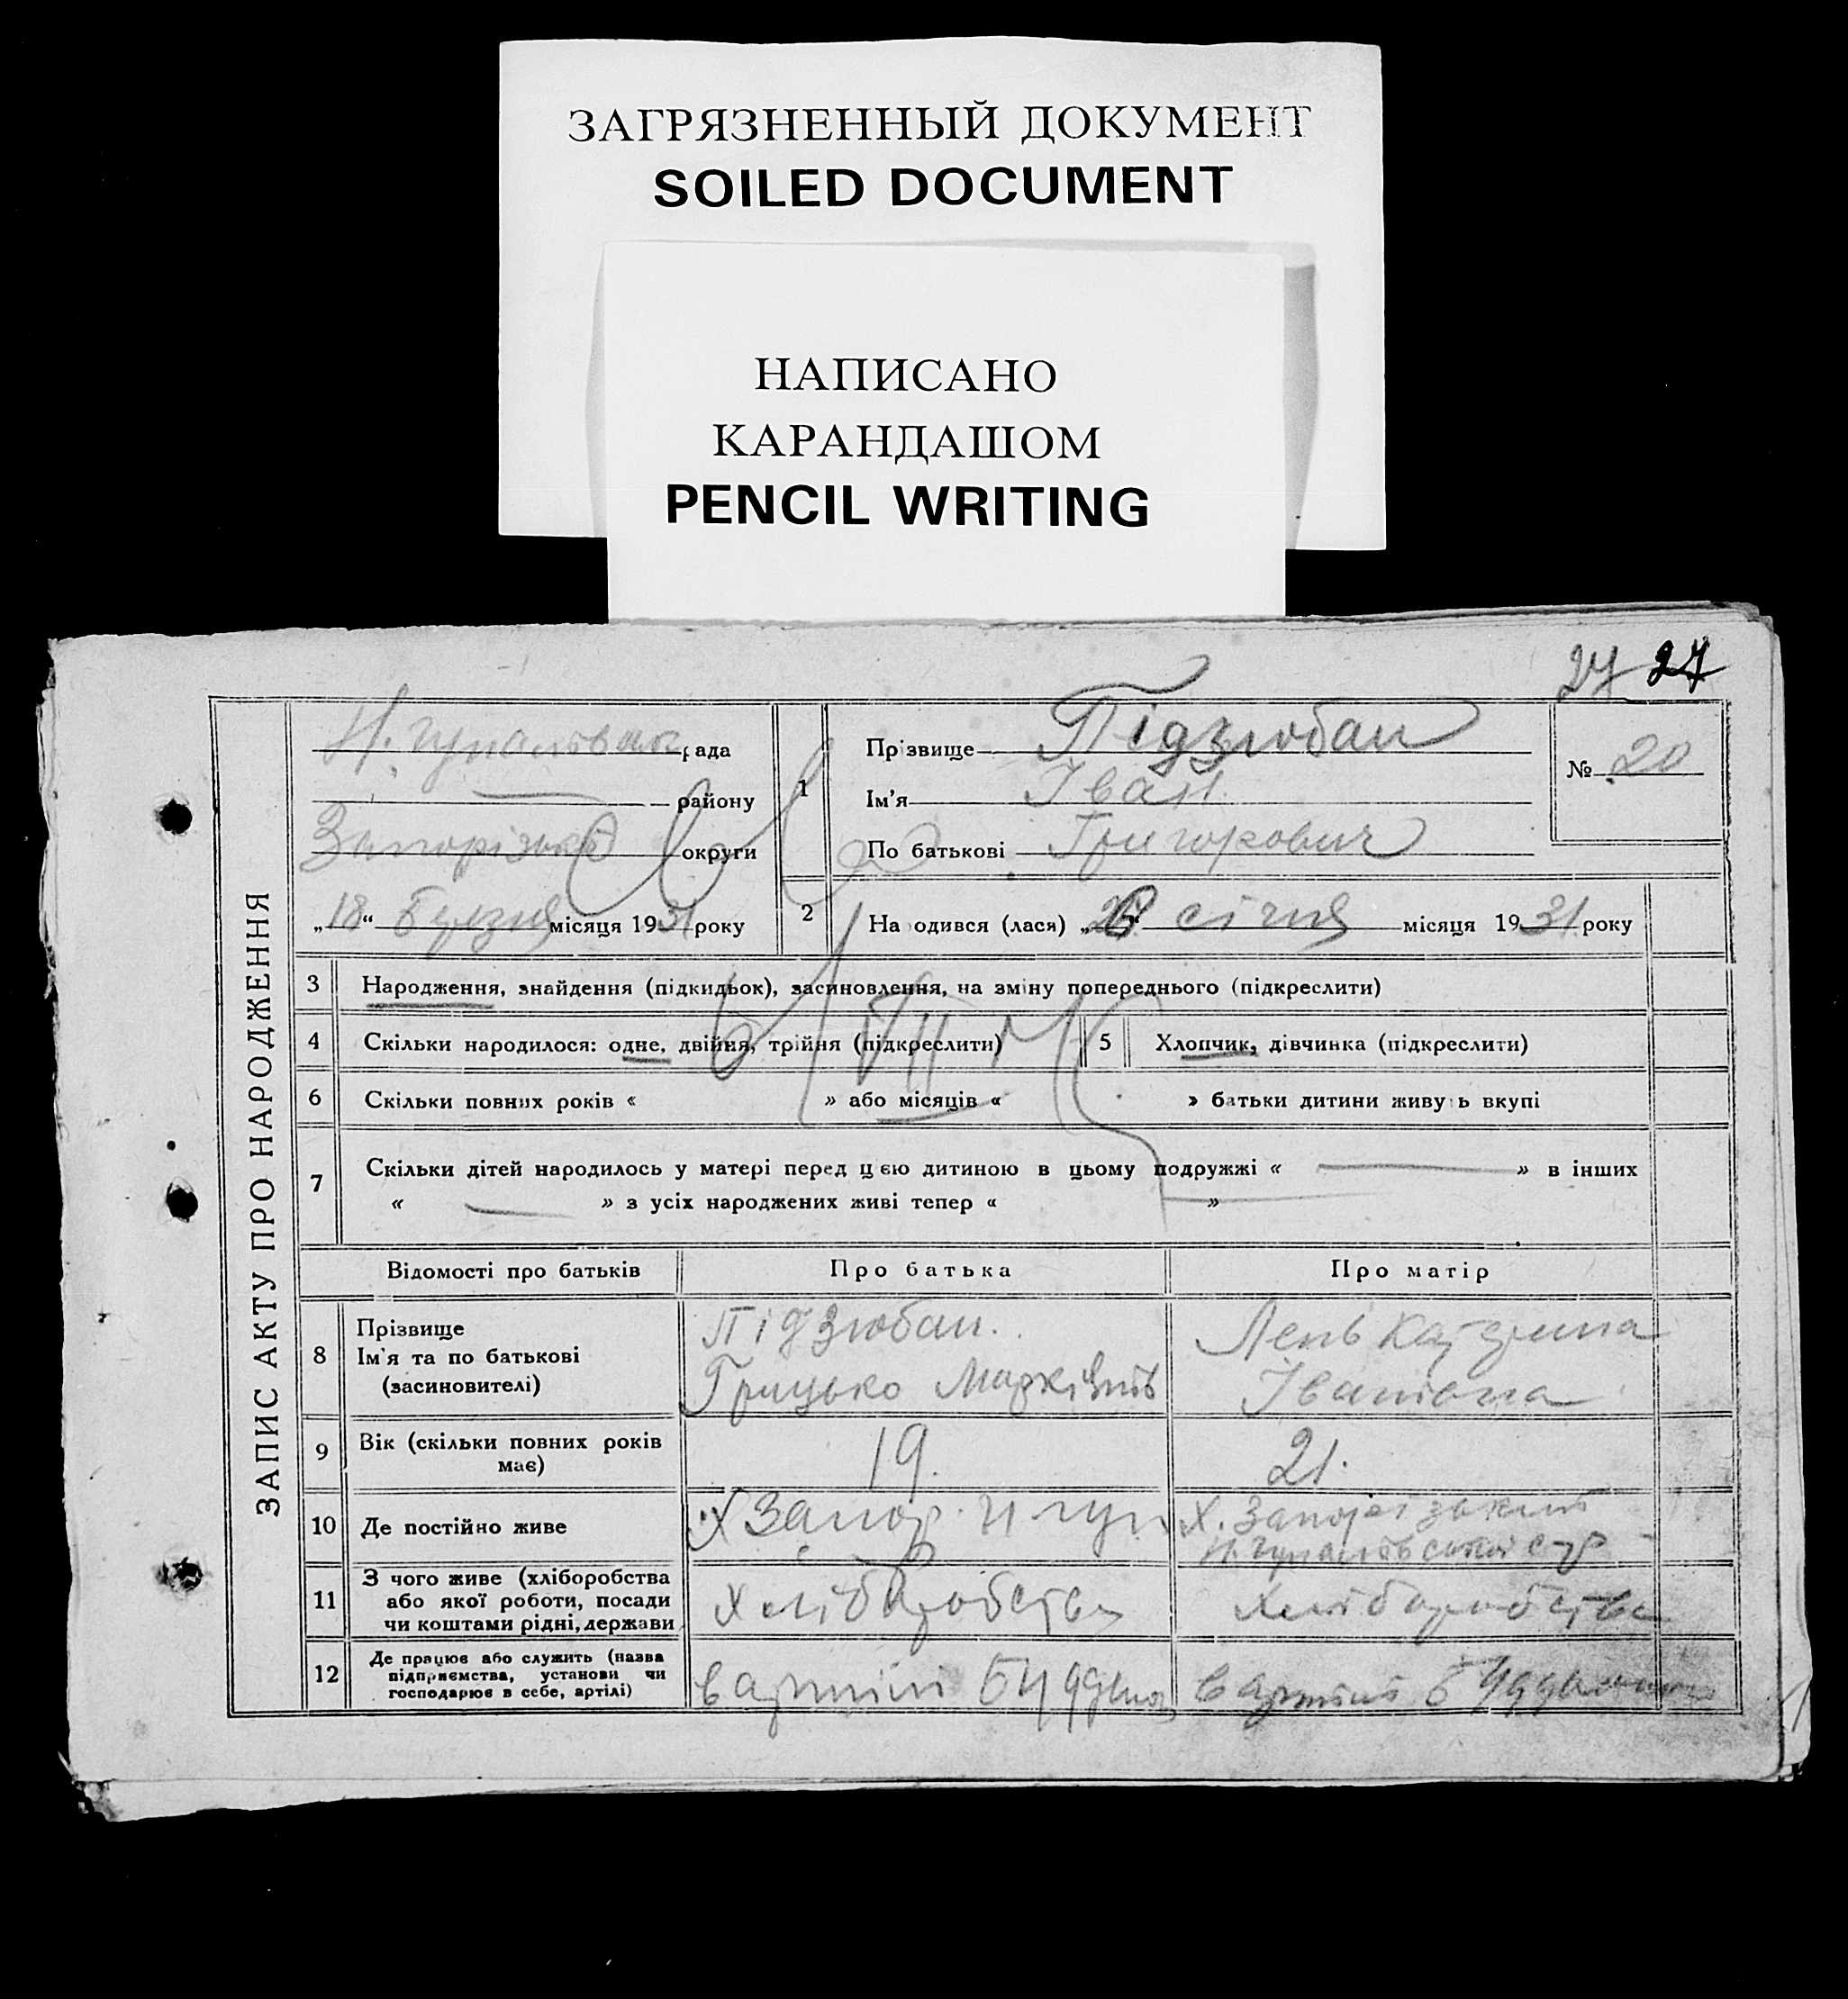 ЗАГРЯЗНЕННЫЙ ДОКУМЕНТ
SOILED DOCUMENT
НАПИСАНО
КАРАНДАШОМ
PENCIL WRITING
27 27
ЗАПИС АКТУ ПРО НАРОДЖЕННЯ
рада
району
округи
„18“ Березня місяця 1931 року
1
Прізвище Підзюбан
Ім'я Іван
По батькові Григорович
№ 20
2 На одився (лася) січня місяця 1931 року
3 Народження, знайдення (підкидьок), засиновлення, на зміну попереднього (підкреслити)
4 Скільки народилося: одне, двійня, трійня (підкреслити) 5 Хлопчик, дівчинка (підкреслити)
6 Скільки повних років « » або місяців « » батьки дитини живуть вкупі
7 Скільки дітей народилось у матері перед цією дитиною в цьому подружжі « — » в інших
« — » з усіх народжених живі тепер « »
Відомості про батьків Про батька Про матір
8 Прізвище
Ім'я та по батькові
(засиновителі)
Підзюбан.
Грицько Марківить
Лень Катерина
Іванівна
9 Вік (скільки повних років
має)
19.
21.
10 Де постійно живе
Х Запор.
Х.
11 З чого живе (хліборобства
або якої роботи, посади
чи коштами рідні, держави
Хліборобства
Хліборобства
12 Де працює або служить (назва
підприємства, установи чи
господарює в себе, артілі)
в артілі
в артілі